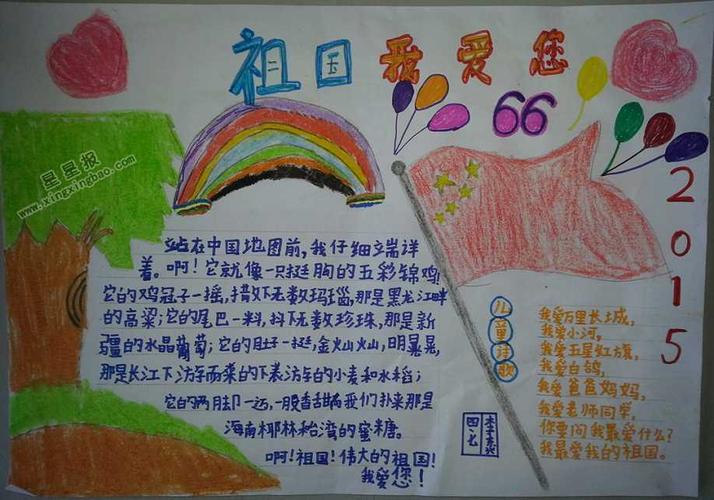 祖国我爱您
66
2015
星星报
www.xingxingbao.com
站在中国地图前,我仔细端详
着。啊!它就像一只挺胸的五彩锦鸡!
它的鸡冠子一摇,撒下无数玛瑙,那是黑龙江畔
的高粱;它的尾巴一料,抖下无数珍珠,那是新
疆的水晶葡萄;它的肚子一挺,金灿灿,明晃晃,
那是长江下游而来的下表游的小麦和水稻;
它的两脚一迈,一股香甜向我们扑来那是
海南椰林和台湾的蜜糖。
啊!祖国!伟大的祖国!
我爱您!
儿童诗歌
我爱万里长城,
我爱小河,
我爱五星红旗,
我爱白鸽,
我爱爸爸妈妈,
我爱老师同学,
你要问我最爱什么?
我最爱我的祖国。
四七